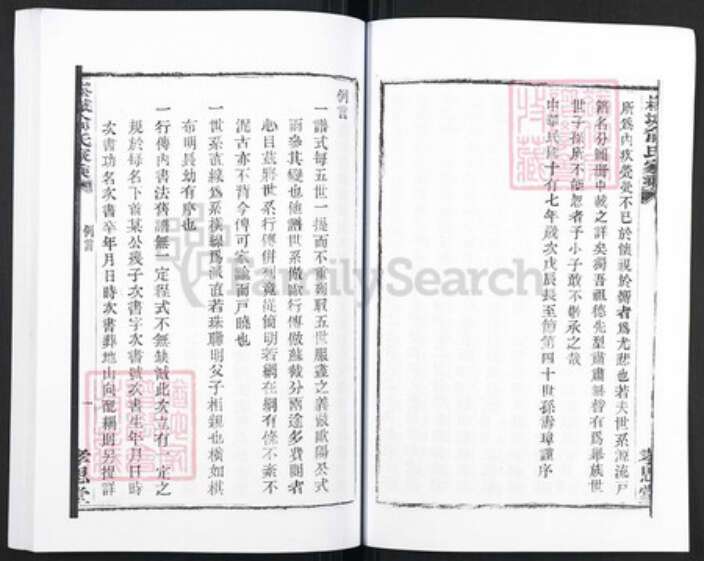 所爲內疚
不已於懷視於
者爲尤
也若夫世系源流戸
名分
冊中載之詳矣獨吾祖德先型肅肅無替有爲舉族世
世子孫所不能忽者予小子敢不
承之哉
中華民國十有七年歲次戊辰長至節第四十世孫壽璋謹序
孝思堂
例言
一譜式每五世一提而不重列取五世服盡之義倣歐陽公式
而參其變也
譜世系倣歐行傳倣蘇截分兩途多費閱者
心目茲將世系行傳併列竟從簡明若網在綱有條不紊不
泥古亦不背今傳可家諭而戸曉也
一世系直線爲系橫線爲派直若珠聯明父子相親也橫如棋
布明長幼有序也
一行傳內書法舊譜無一定程式不無缺減此次立有一定之
規於每名下首某公幾子次書字次書號次書生年月日時
次書功名次書卒年月日時次書葬地山向配
則另提詳
例言
一
孝思堂
FamilySearch